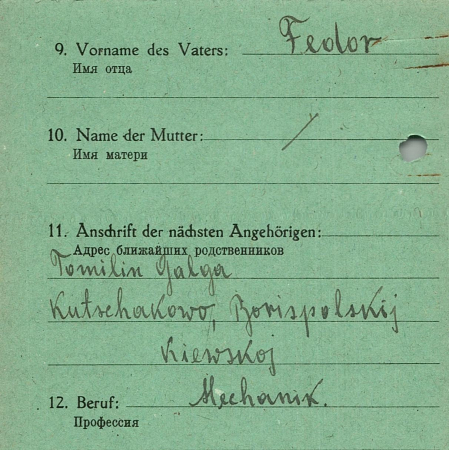 9. Vorname des Vaters: Fedor
Имя отца
10. Name der Mutter: /
Имя матери
11. Anschrift der nächsten Angehörigen:
Адрес ближайших родственников
Tomilin Galga
Kutschakowo, Borispolskij
Kiewskoj
12. Beruf: Mechanik.
Профессия